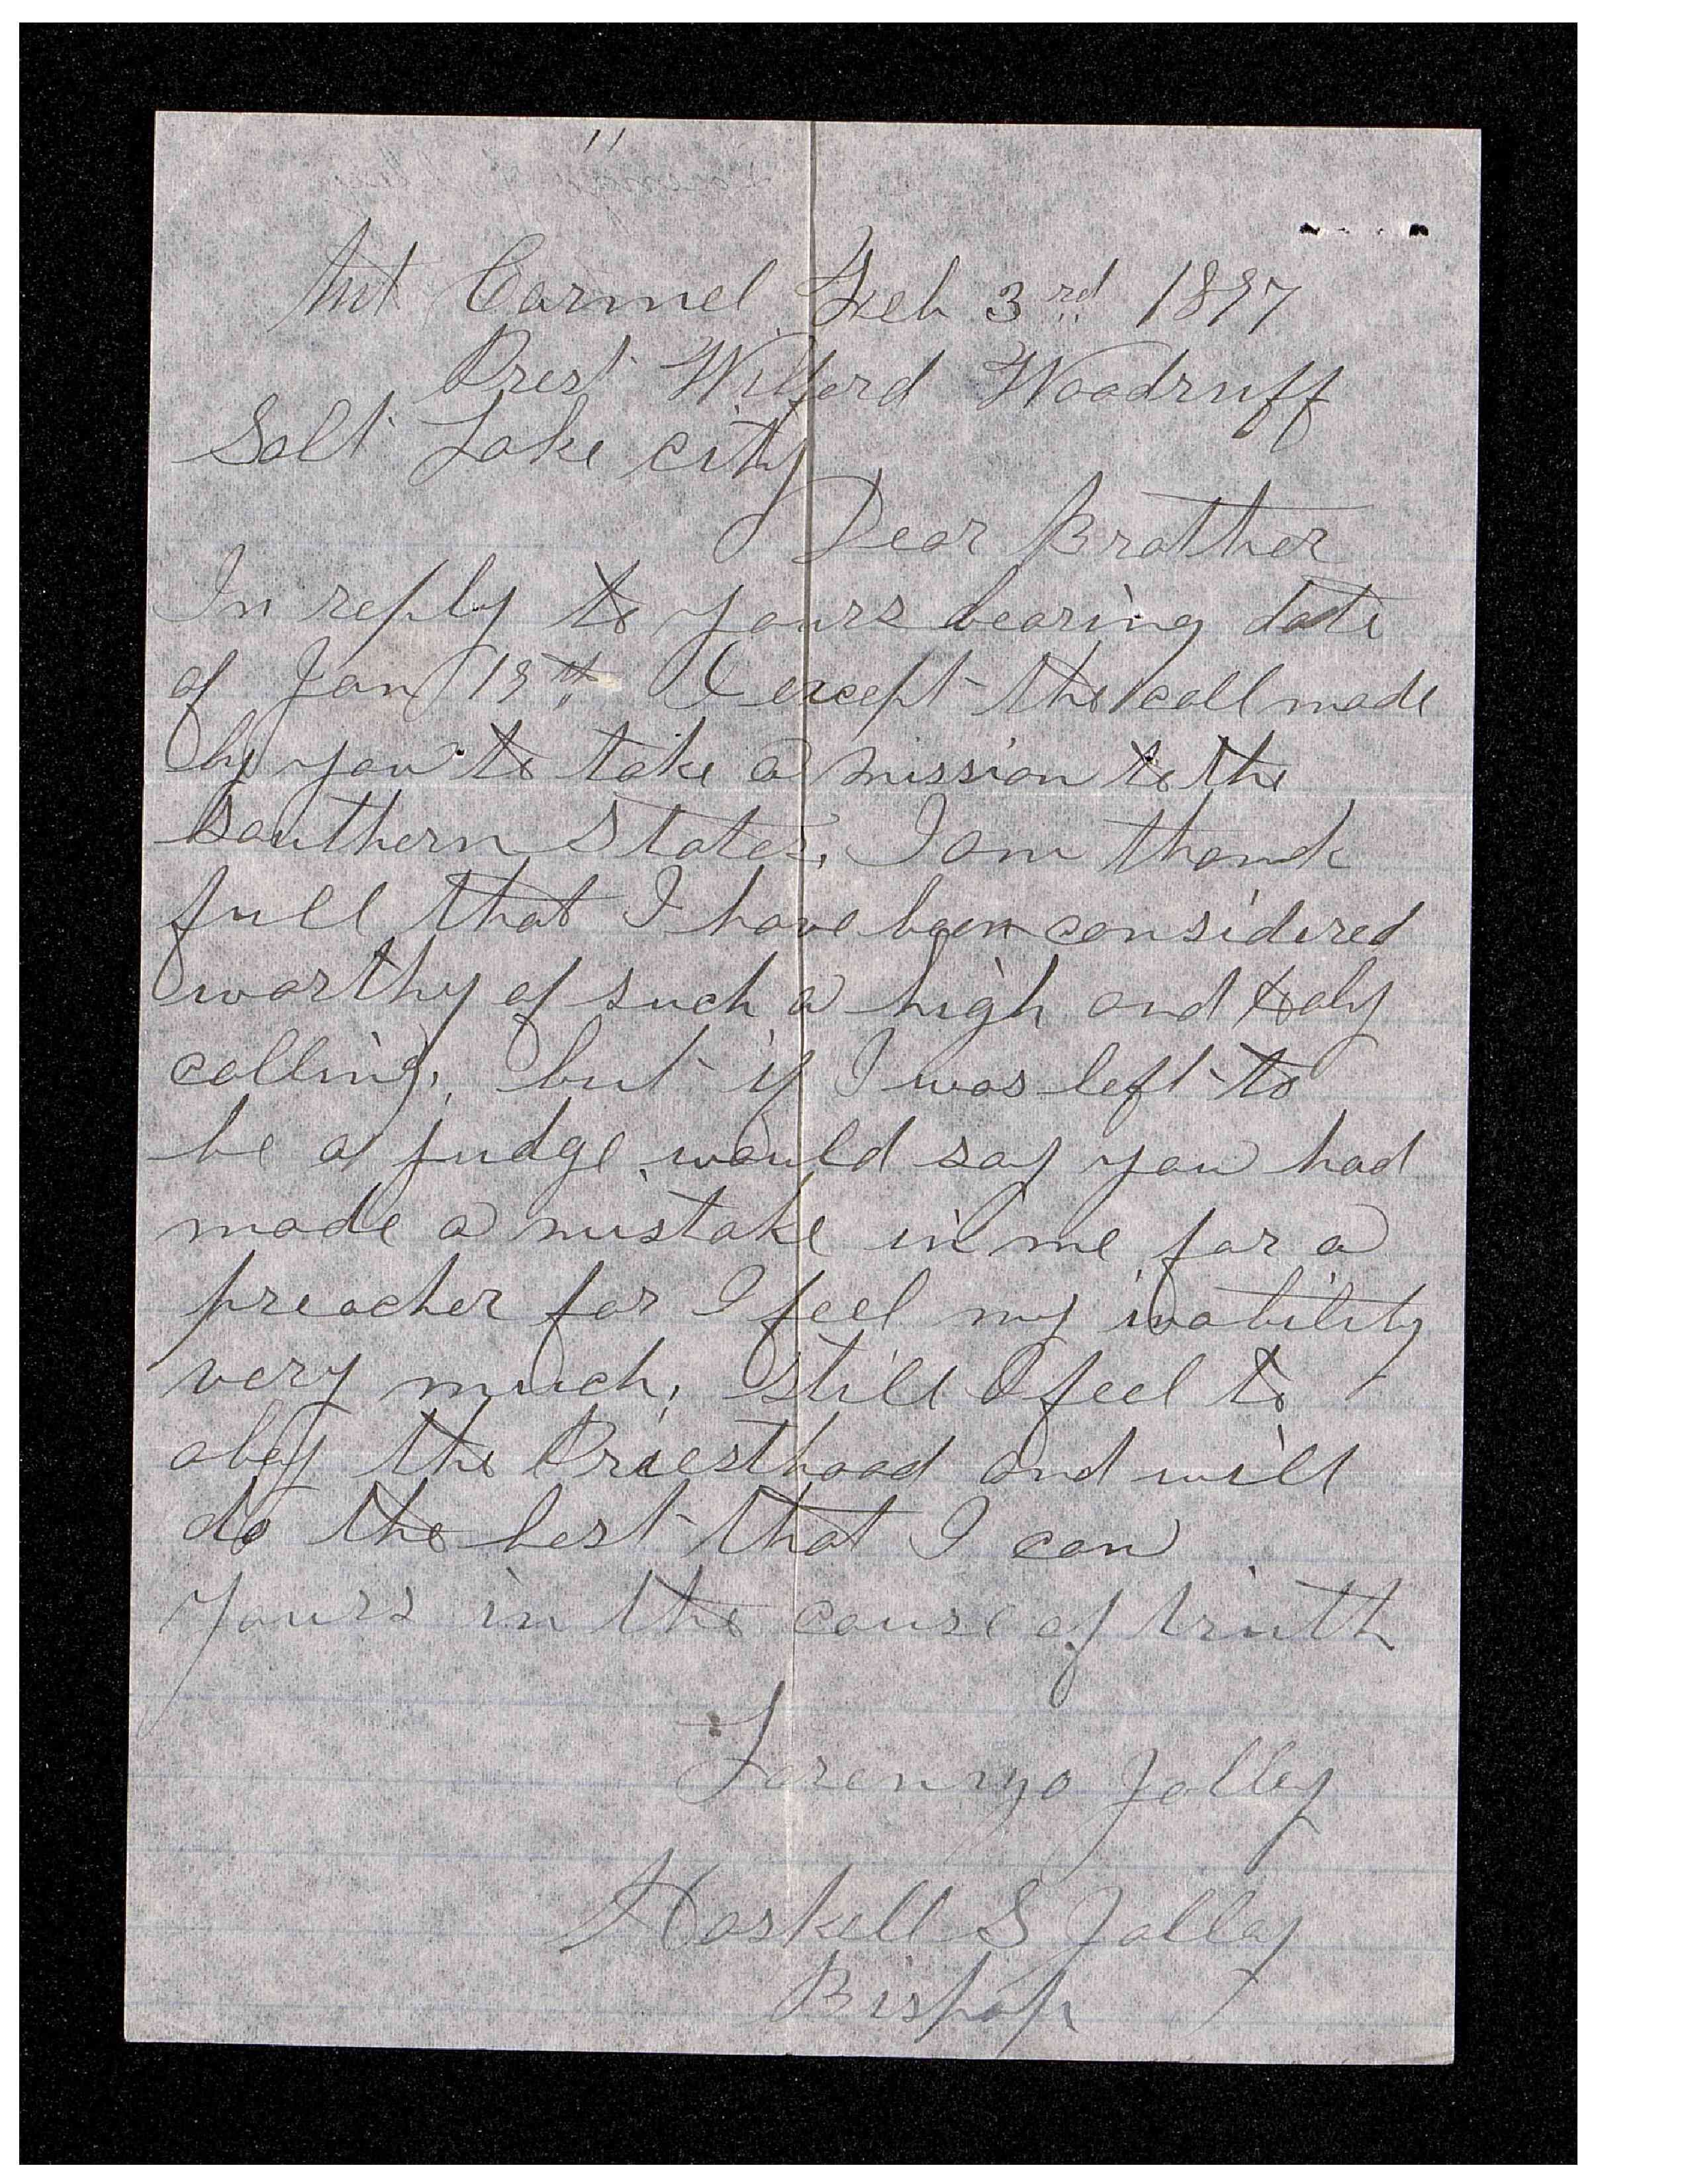 Mt Carmel Feb 3rd 1897
Prest Wilford Woodruff
Salt Lake city
Dear Brother
In reply to yours bearing date
of Jan 19th I except the call made
by you to take a mission to the
Southern States, I am thank
full that I have been considered
worthy of such a high and Holy
calling, but if I was left to
be a judge would say you had
made a mistake in me for a
preacher for I feel my inability
very much, still I feel to
obey the Priesthood and will
do the best that I can
yours in the cause of truth
Lorenzo Jolley
Haskell S Jolley
Bishop